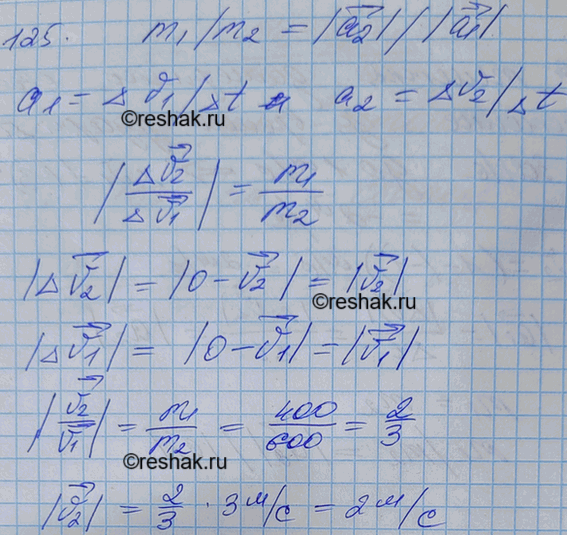 125. m₁/m₂ = |a⃗₂|/|a⃗₁|
a₁ = Δv⃗₁/Δt и a₂ = Δv⃗₂/Δt
©reshak.ru
|Δv⃗₂/Δv⃗₁| = m₁/m₂
|Δv⃗₂| = |0 - v⃗₂| = |v⃗₂|
©reshak.ru
|Δv⃗₁| = |0 - v⃗₁| = |v⃗₁|
|v⃗₂/v⃗₁| = m₁/m₂ = 400/600 = 2/3
©reshak.ru
|v⃗₂| = 2/3 · 3 м/с = 2 м/с